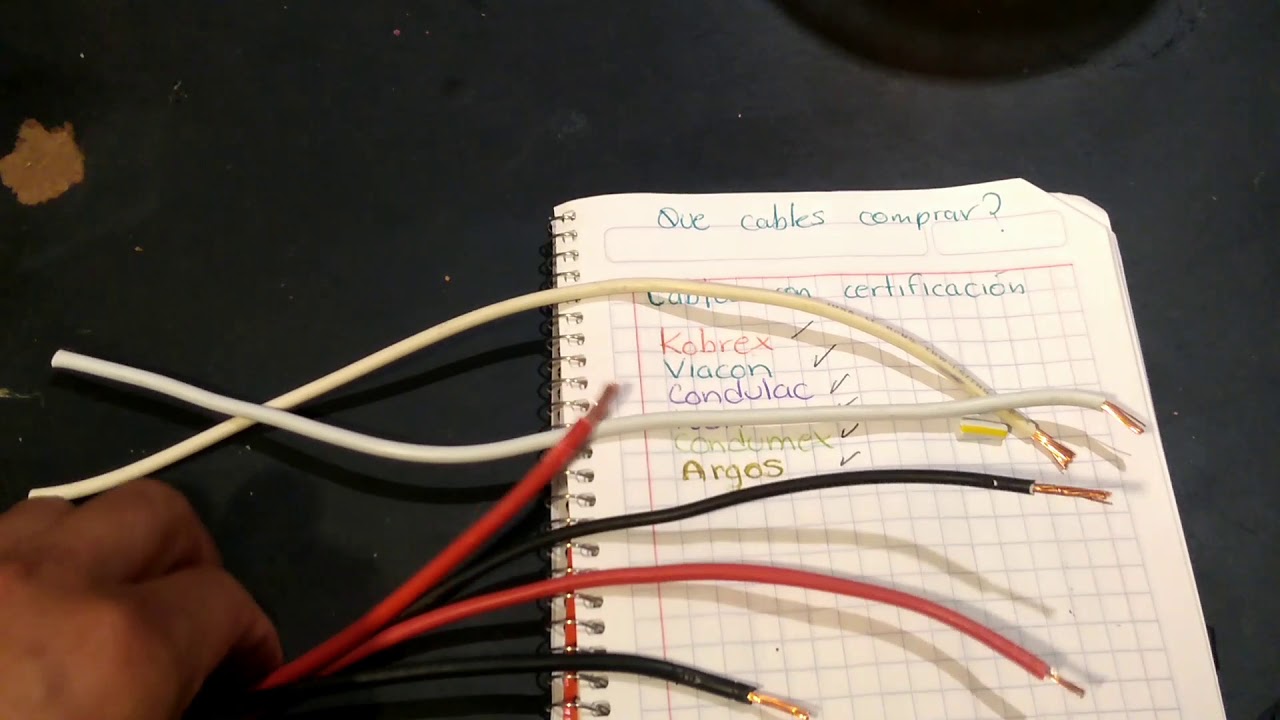 Que cables comprar?
certificación
Kobrex ✓
Viacon ✓
Condulac ✓
Condumex ✓
Argos ✓